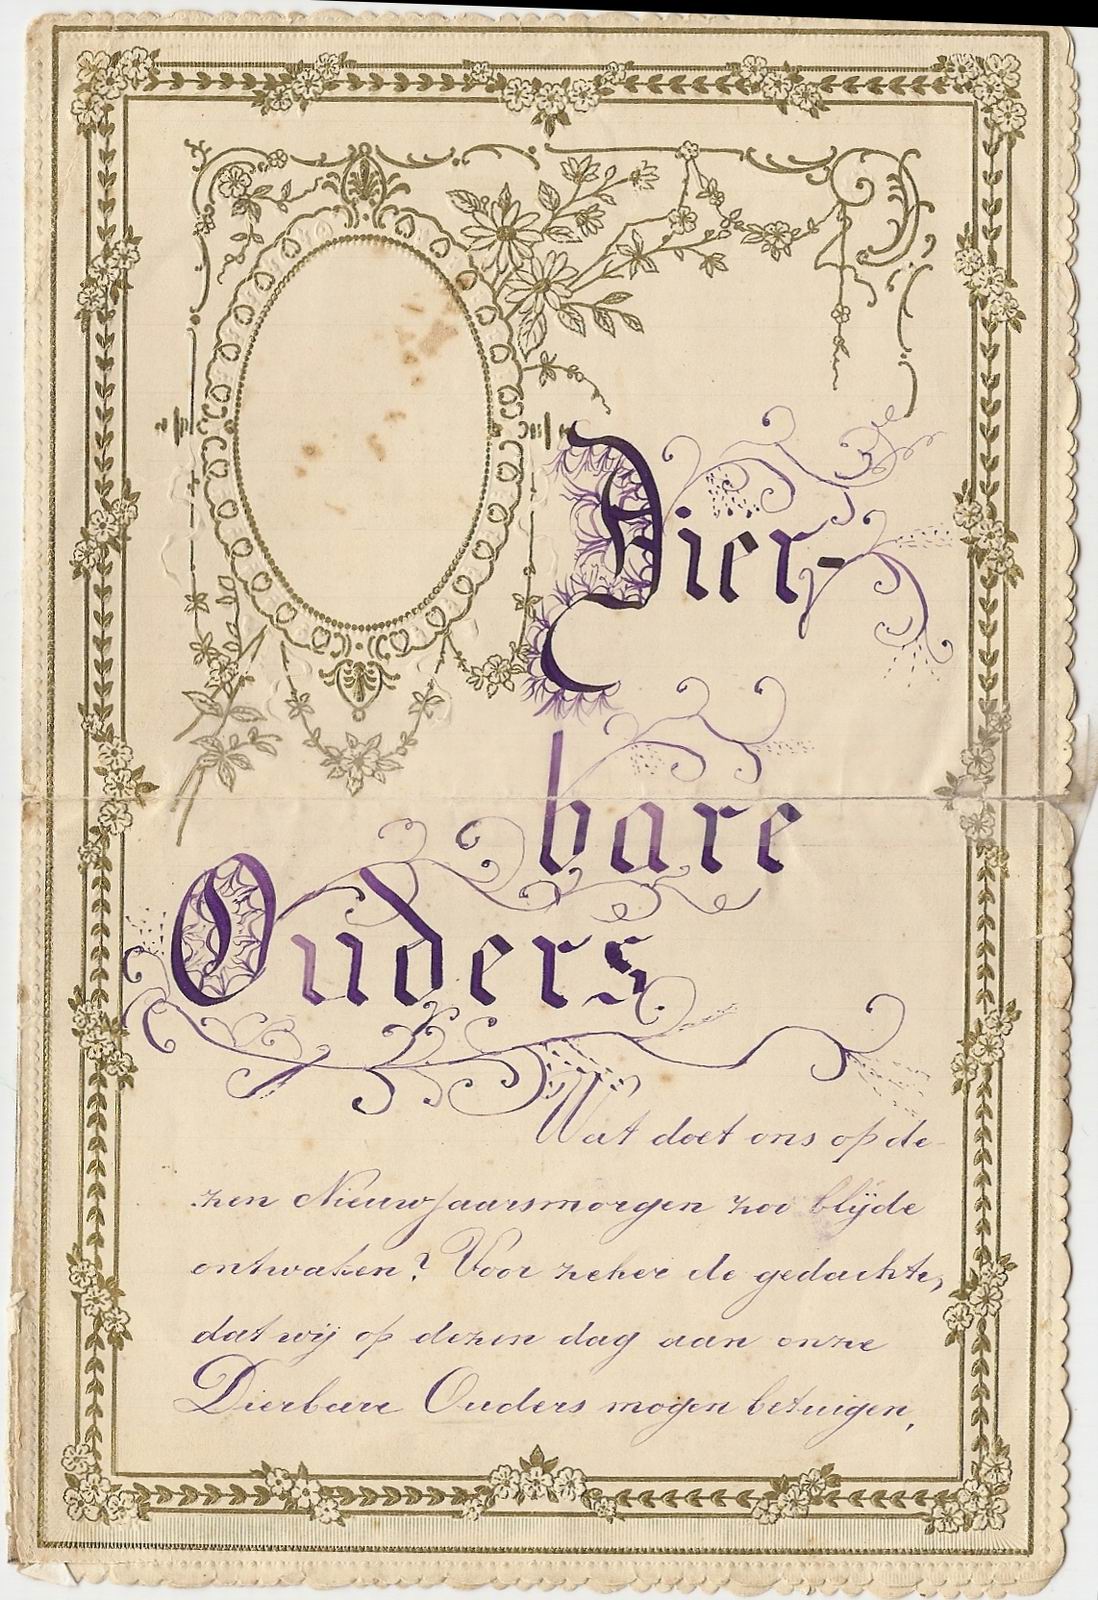 Dier-
bare
Ouders
Wat doet ons op de-
zen Nieuwjaarsmorgen zoo blijde
ontwaken? Voor zeker de gedachte,
dat wij op dezen dag aan onze
Dierbare Ouders mogen betuigen,